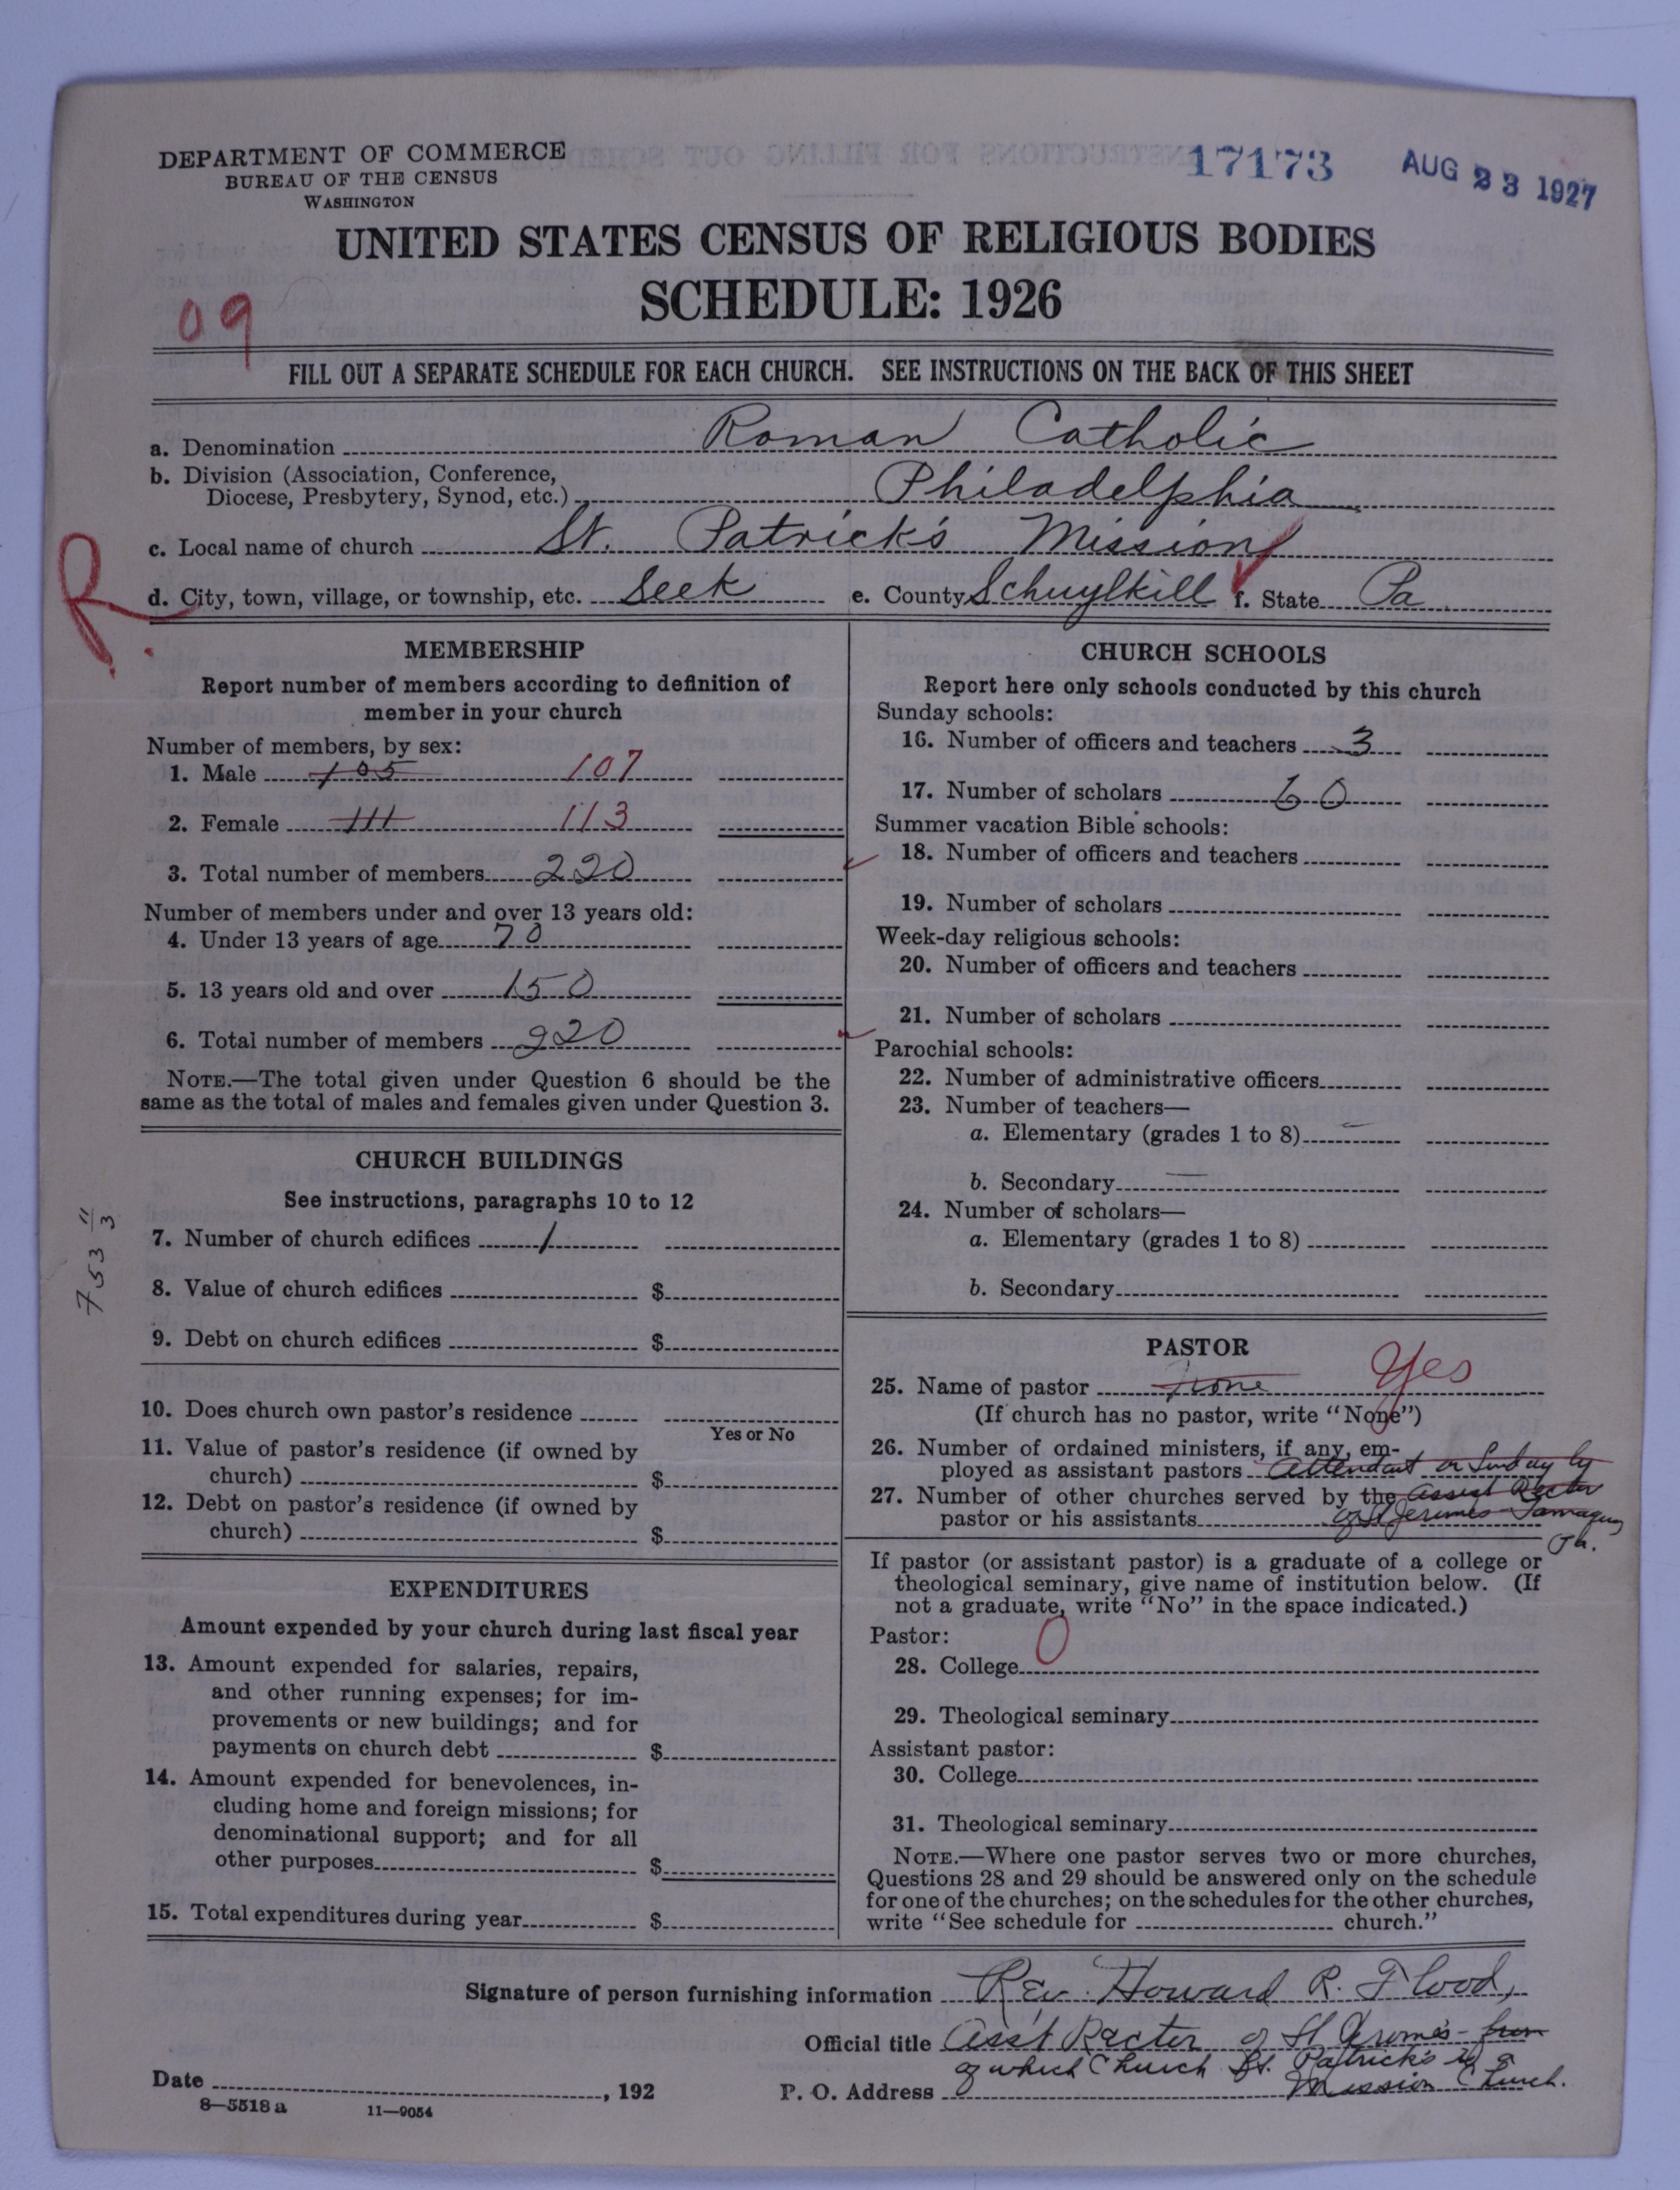 DEPARTMENT OF COMMERCE
BUREAU OF THE CENSUS
WASHINGTON
17173
AUG 23 1927
UNITED STATES CENSUS OF RELIGIOUS BODIES
SCHEDULE: 1926
09
FILL OUT A SEPARATE SCHEDULE FOR EACH CHURCH. SEE INSTRUCTIONS ON THE BACK OF THIS SHEET
a. Denomination Roman Catholic
b. Division (Association, Conference,
Diocese, Presbytery, Synod, etc.) Philadelphia
c. Local name of church St. Patrick's Mission
R.
d. City, town, village, or township, etc. Seek e. County Schuylkill f. State Pa
MEMBERSHIP
Report number of members according to definition of
member in your church
Number of members, by sex:
1. Male 105 107
2. Female 111 113
3. Total number of members 220
Number of members under and over 13 years old:
4. Under 13 years of age 70
5. 13 years old and over 150
6. Total number of members 220
NOTE.—The total given under Question 6 should be the
same as the total of males and females given under Question 3.
CHURCH BUILDINGS
See instructions, paragraphs 10 to 12
7. Number of church edifices 1
8. Value of church edifices $
9. Debt on church edifices $
10. Does church own pastor's residence
Yes or No
11. Value of pastor's residence (if owned by
church) $
12. Debt on pastor's residence (if owned by
church) $
753 11/3
EXPENDITURES
Amount expended by your church during last fiscal year
13. Amount expended for salaries, repairs,
and other running expenses; for im-
provements or new buildings; and for
payments on church debt $
14. Amount expended for benevolences, in-
cluding home and foreign missions; for
denominational support; and for all
other purposes $
15. Total expenditures during year $
CHURCH SCHOOLS
Report here only schools conducted by this church
Sunday schools:
16. Number of officers and teachers 3
17. Number of scholars 60
Summer vacation Bible schools:
18. Number of officers and teachers
19. Number of scholars
Week-day religious schools:
20. Number of officers and teachers
21. Number of scholars
Parochial schools:
22. Number of administrative officers
23. Number of teachers—
a. Elementary (grades 1 to 8)
b. Secondary
24. Number of scholars—
a. Elementary (grades 1 to 8)
b. Secondary
PASTOR
25. Name of pastor None Yes
(If church has no pastor, write "None")
26. Number of ordained ministers, if any, em-
ployed as assistant pastors Attendant on Sunday by
27. Number of other churches served by the Assist Rector
pastor or his assistants of St Jeromes Tamaqua
Pa.
If pastor (or assistant pastor) is a graduate of a college or
theological seminary, give name of institution below. (If
not a graduate, write "No" in the space indicated.)
Pastor: 0
28. College
29. Theological seminary
Assistant pastor:
30. College
31. Theological seminary
NOTE.—Where one pastor serves two or more churches,
Questions 28 and 29 should be answered only on the schedule
for one of the churches; on the schedules for the other churches,
write "See schedule for church."
Signature of person furnishing information Rev. Howard R. Flood,
Official title Ass't Rector of St Jerome's - from
of which Church St. Patrick's is a
Date , 192 P. O. Address Mission Church.
8—5518 a 11—9054